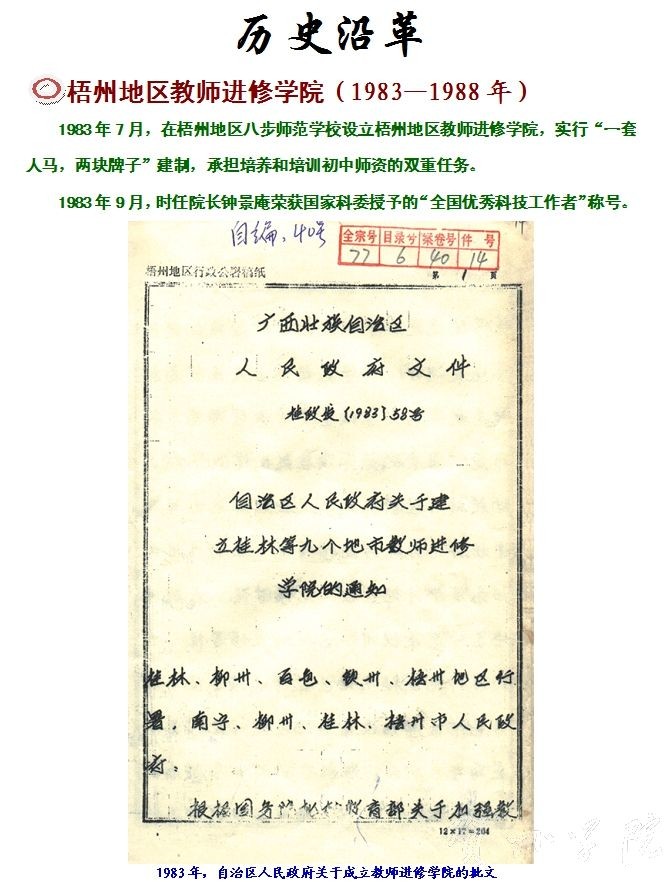 历史沿革
梧州地区教师进修学院（1983—1988 年）
1983 年 7 月，在梧州地区八步师范学校设立梧州地区教师进修学院，实行“一套
人马，两块牌子”建制，承担培养和培训初中师资的双重任务。
1983 年 9 月，时任院长钟景庵荣获国家科委授予的“全国优秀科技工作者”称号。
自编、40号
全宗号 目录号 案卷号 件号
77 6 40 14
梧州地区行政公署稿纸 第 1 页
广西壮族自治区
人民政府文件
桂政发〔1983〕58号
自治区人民政府关于建
立桂林等九个地市教师进修
学院的通知
桂林、柳州、百色、钦州、梧州地区行
署，南宁、柳州、桂林、梧州市人民政
府：
根据国务院批转教育部关于加强教
12×17=204
学院
1983 年，自治区人民政府关于成立教师进修学院的批文